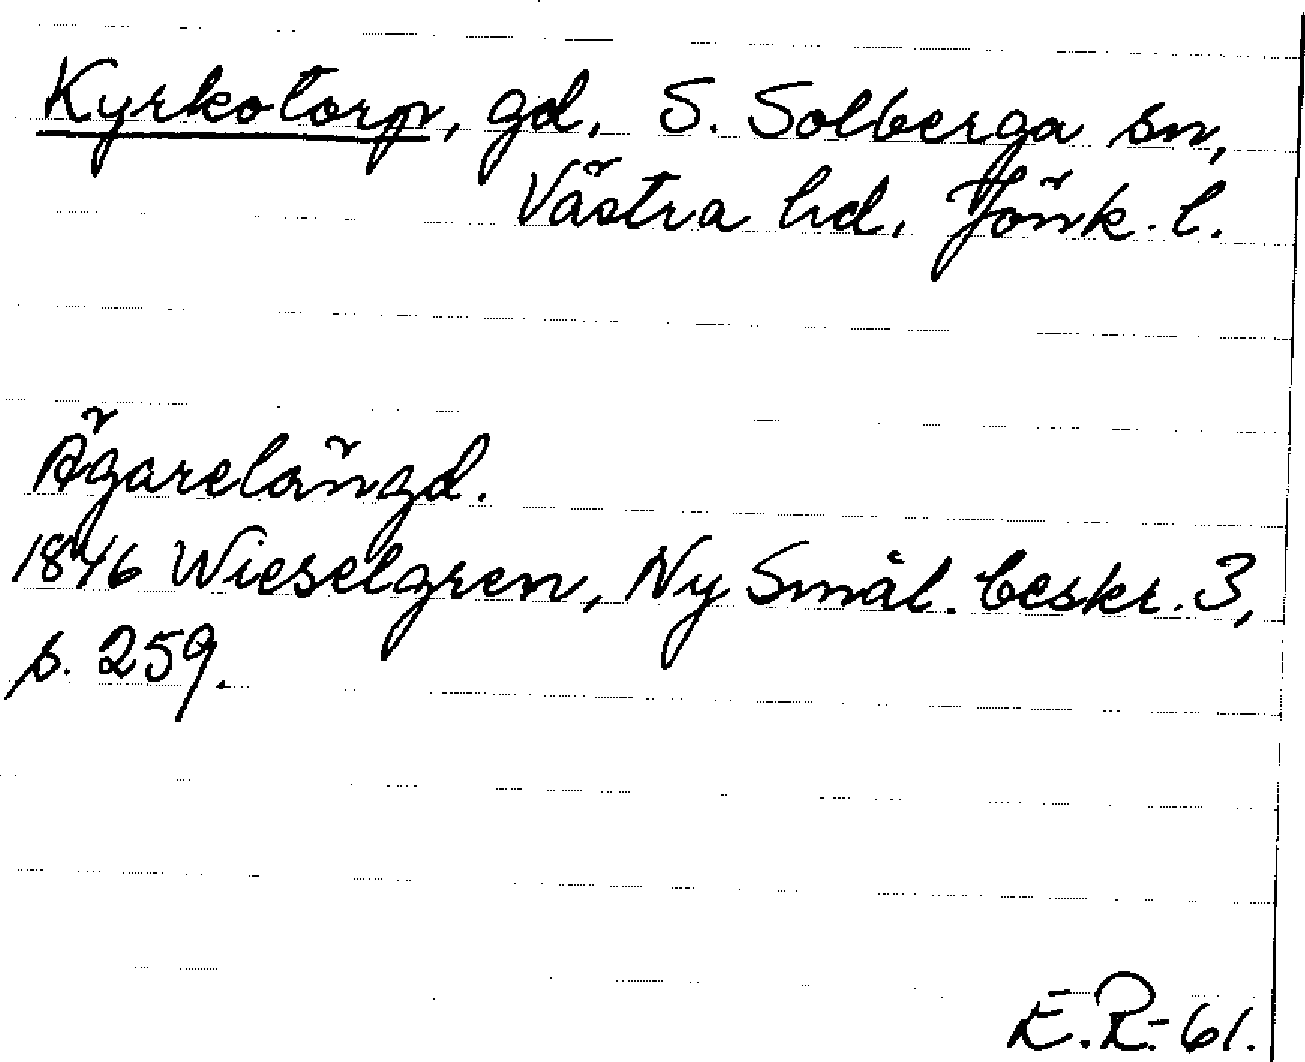 Kyrkotorp, gd, S. Solberga sn,
Västra hd. Jönk. l.
Ägarelängd.
1846 Wieselgren, Ny Smål. beskr. 3,
s. 259.
E.R.-61.